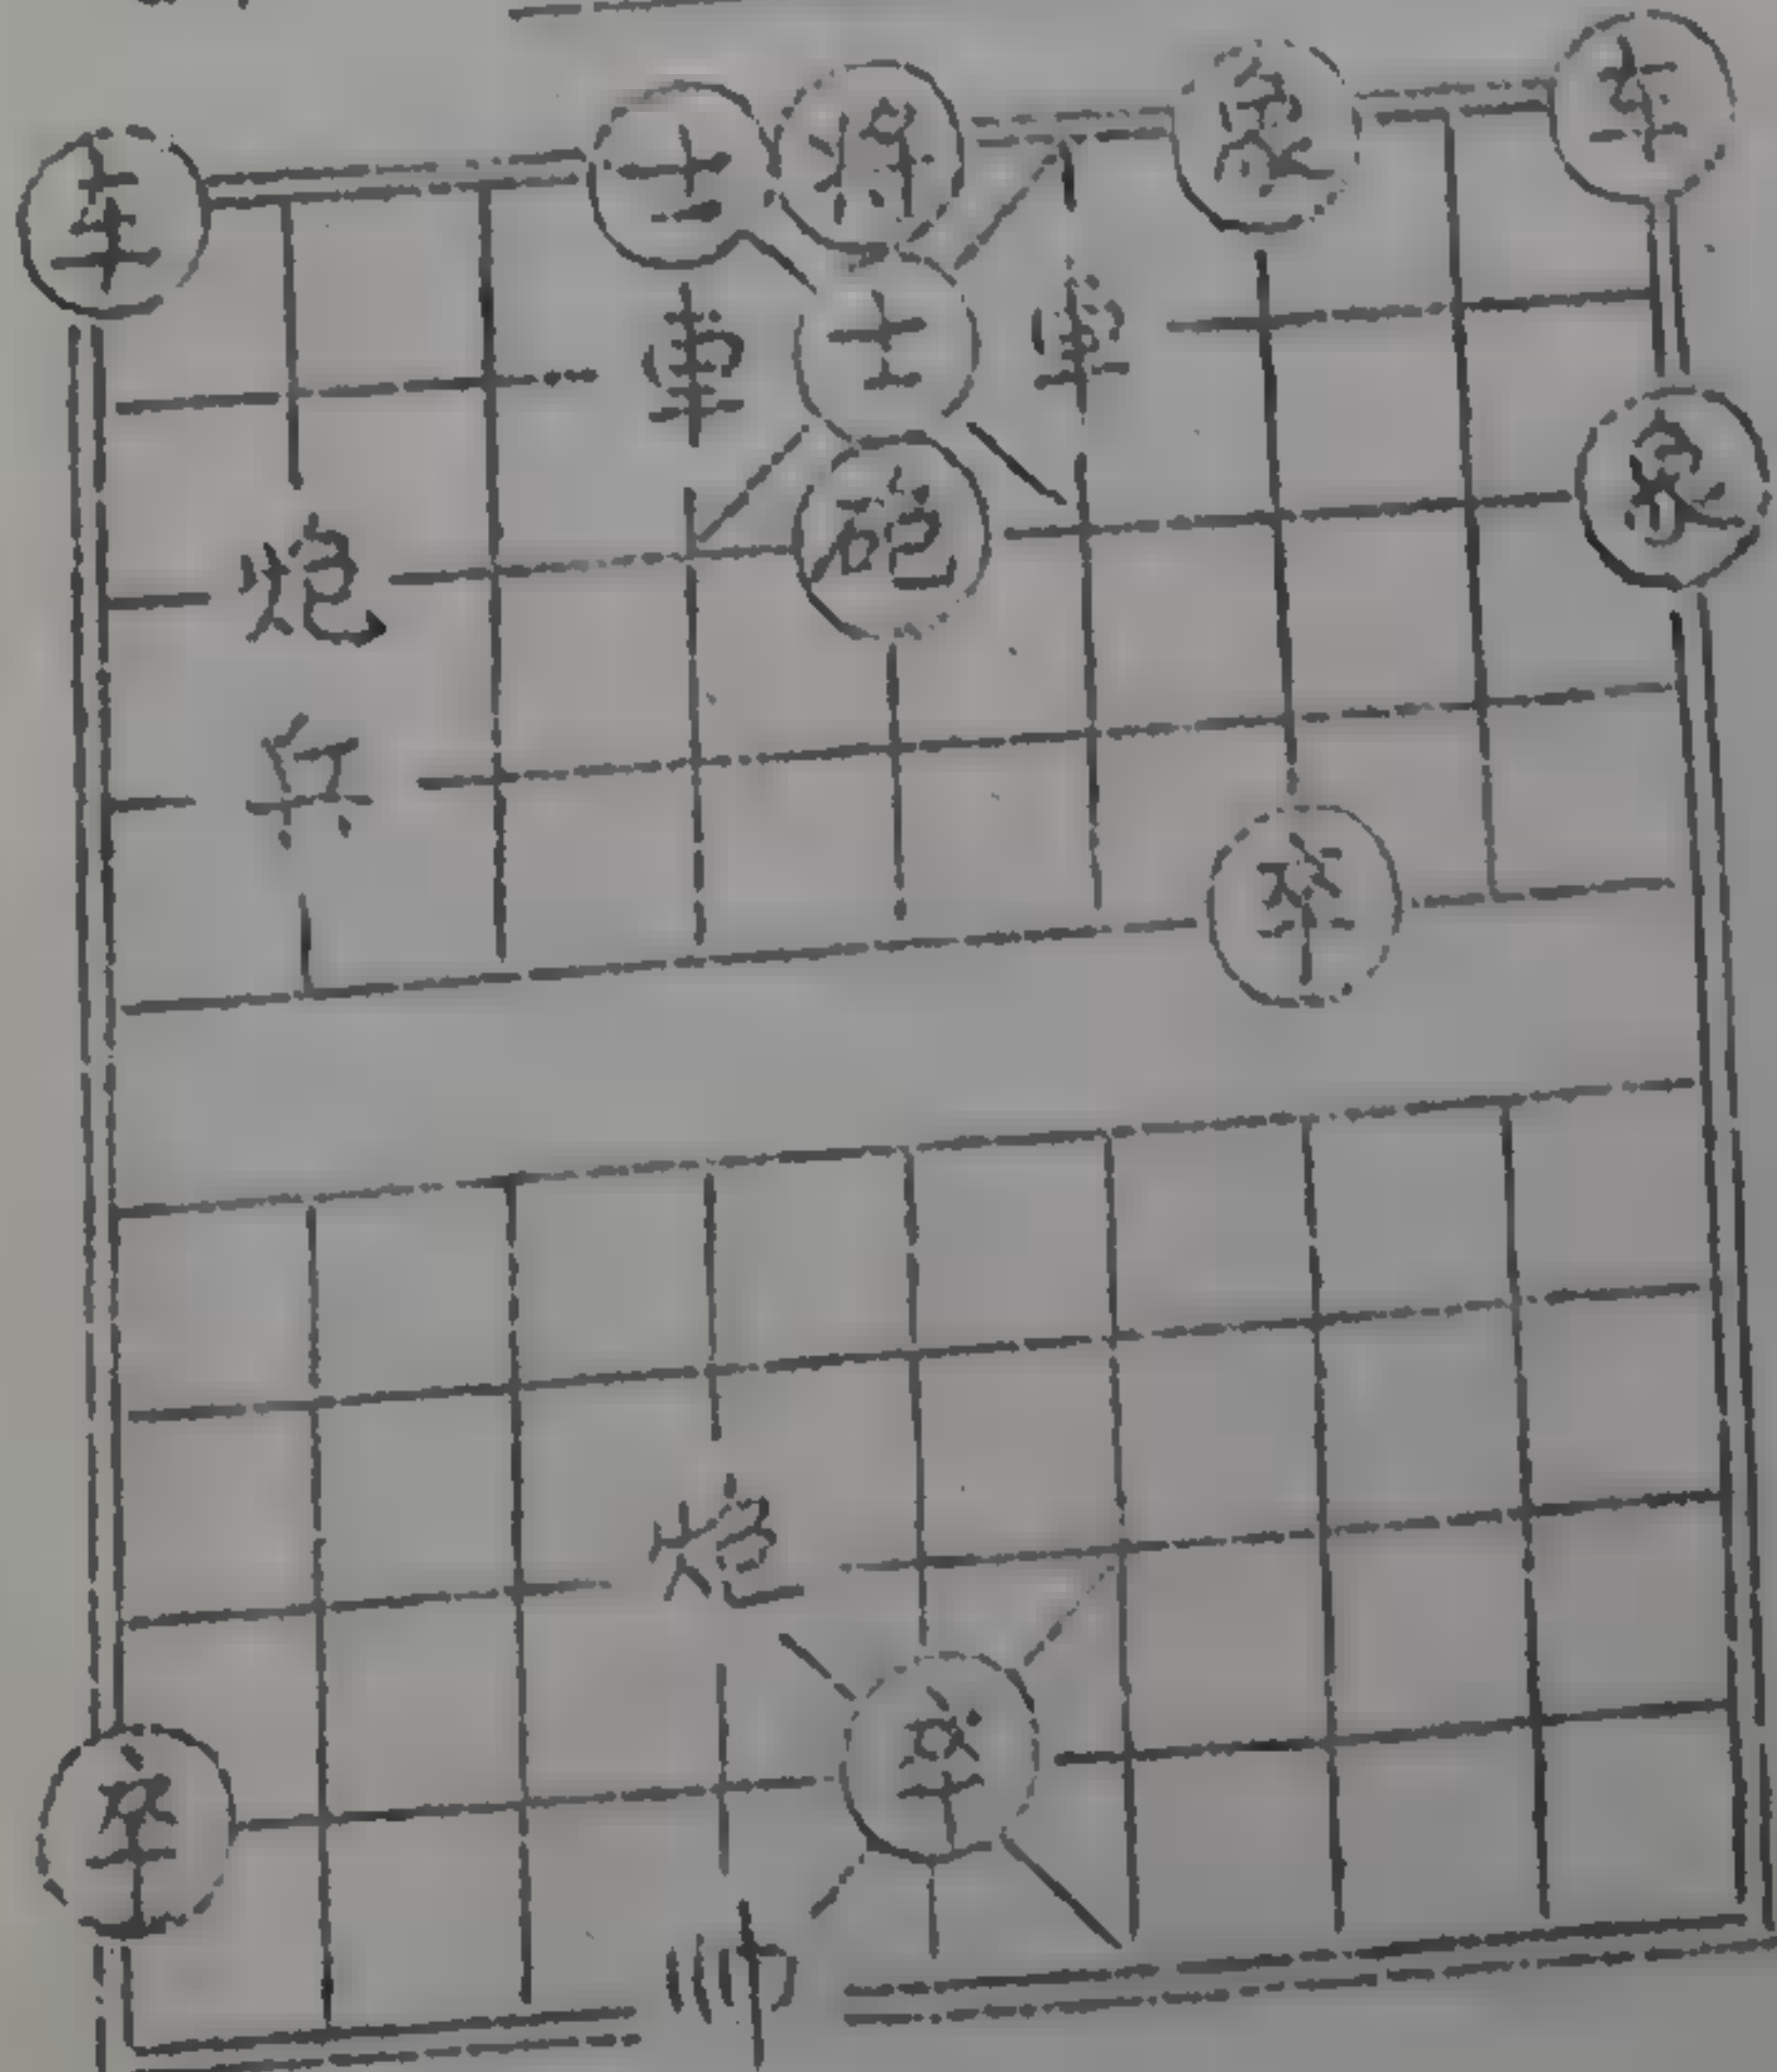 车 士 将 象 车
車 士 車
炮 砲 象
兵
卒
炮
卒 卒
帅